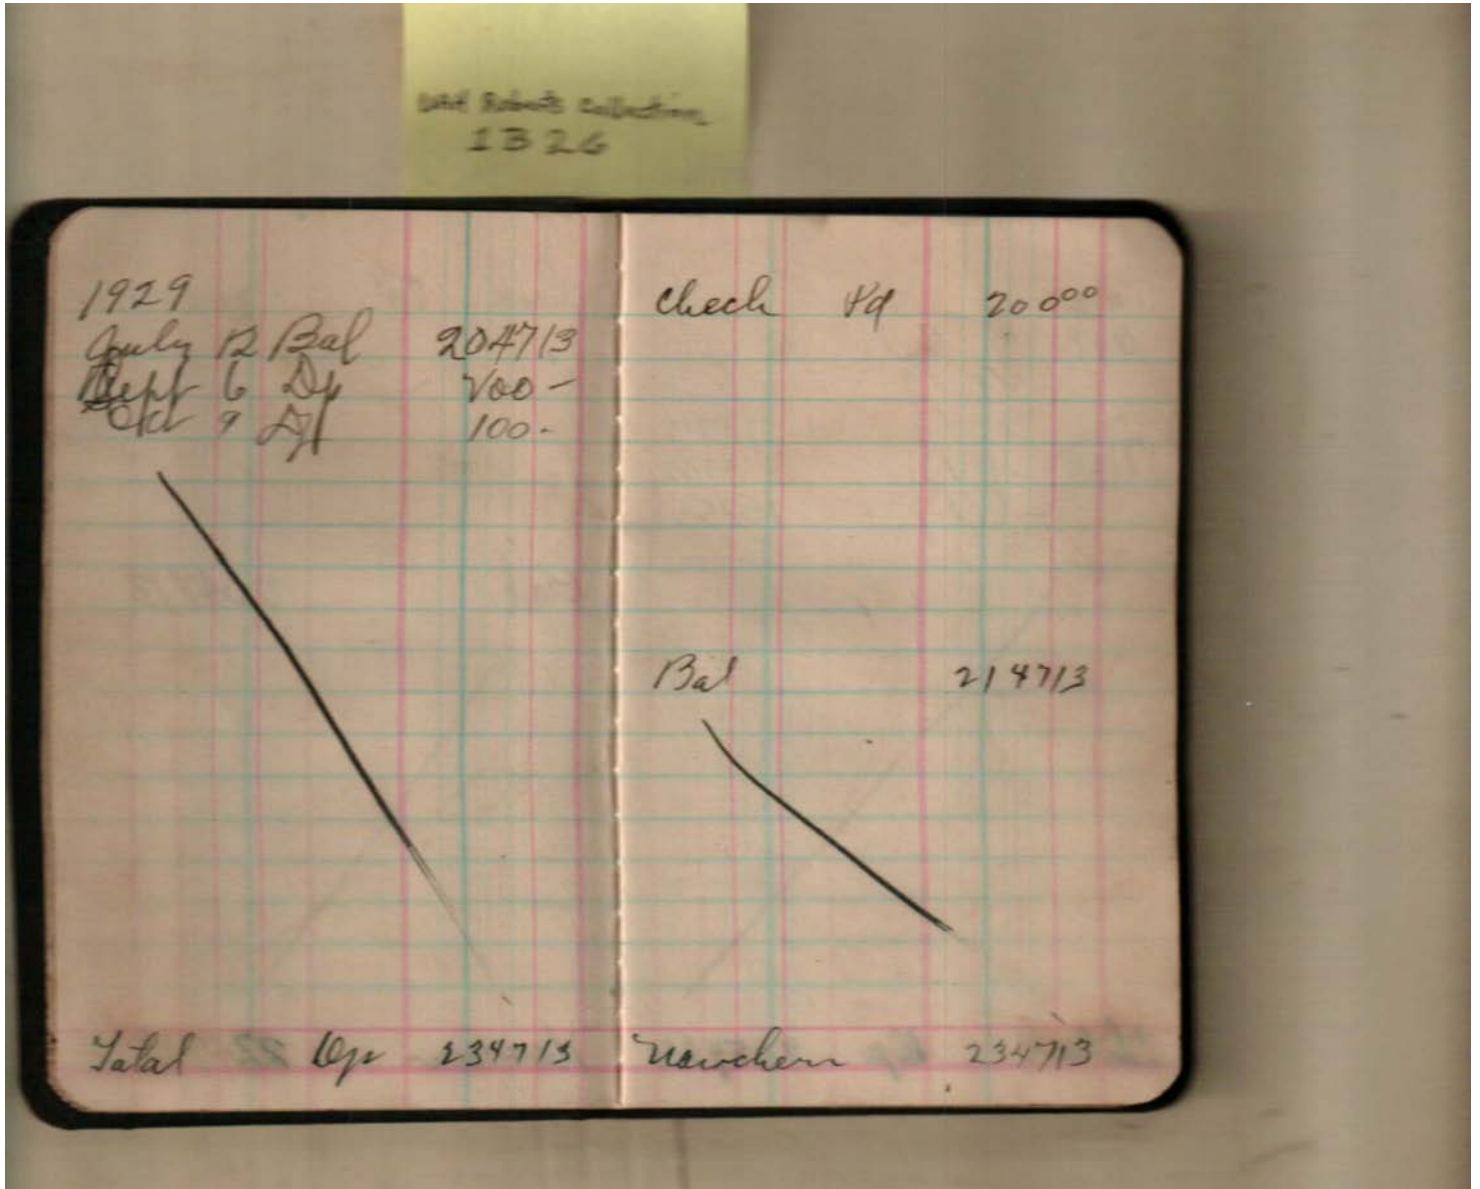 UAH Roberts Collection
1B26
1929
July 12 Bal 204713
Sept 6 Dp 200 -
Oct 9 Dp 100 -
Total Dp 234713
Check Pd 200 00
Bal 214713
234713